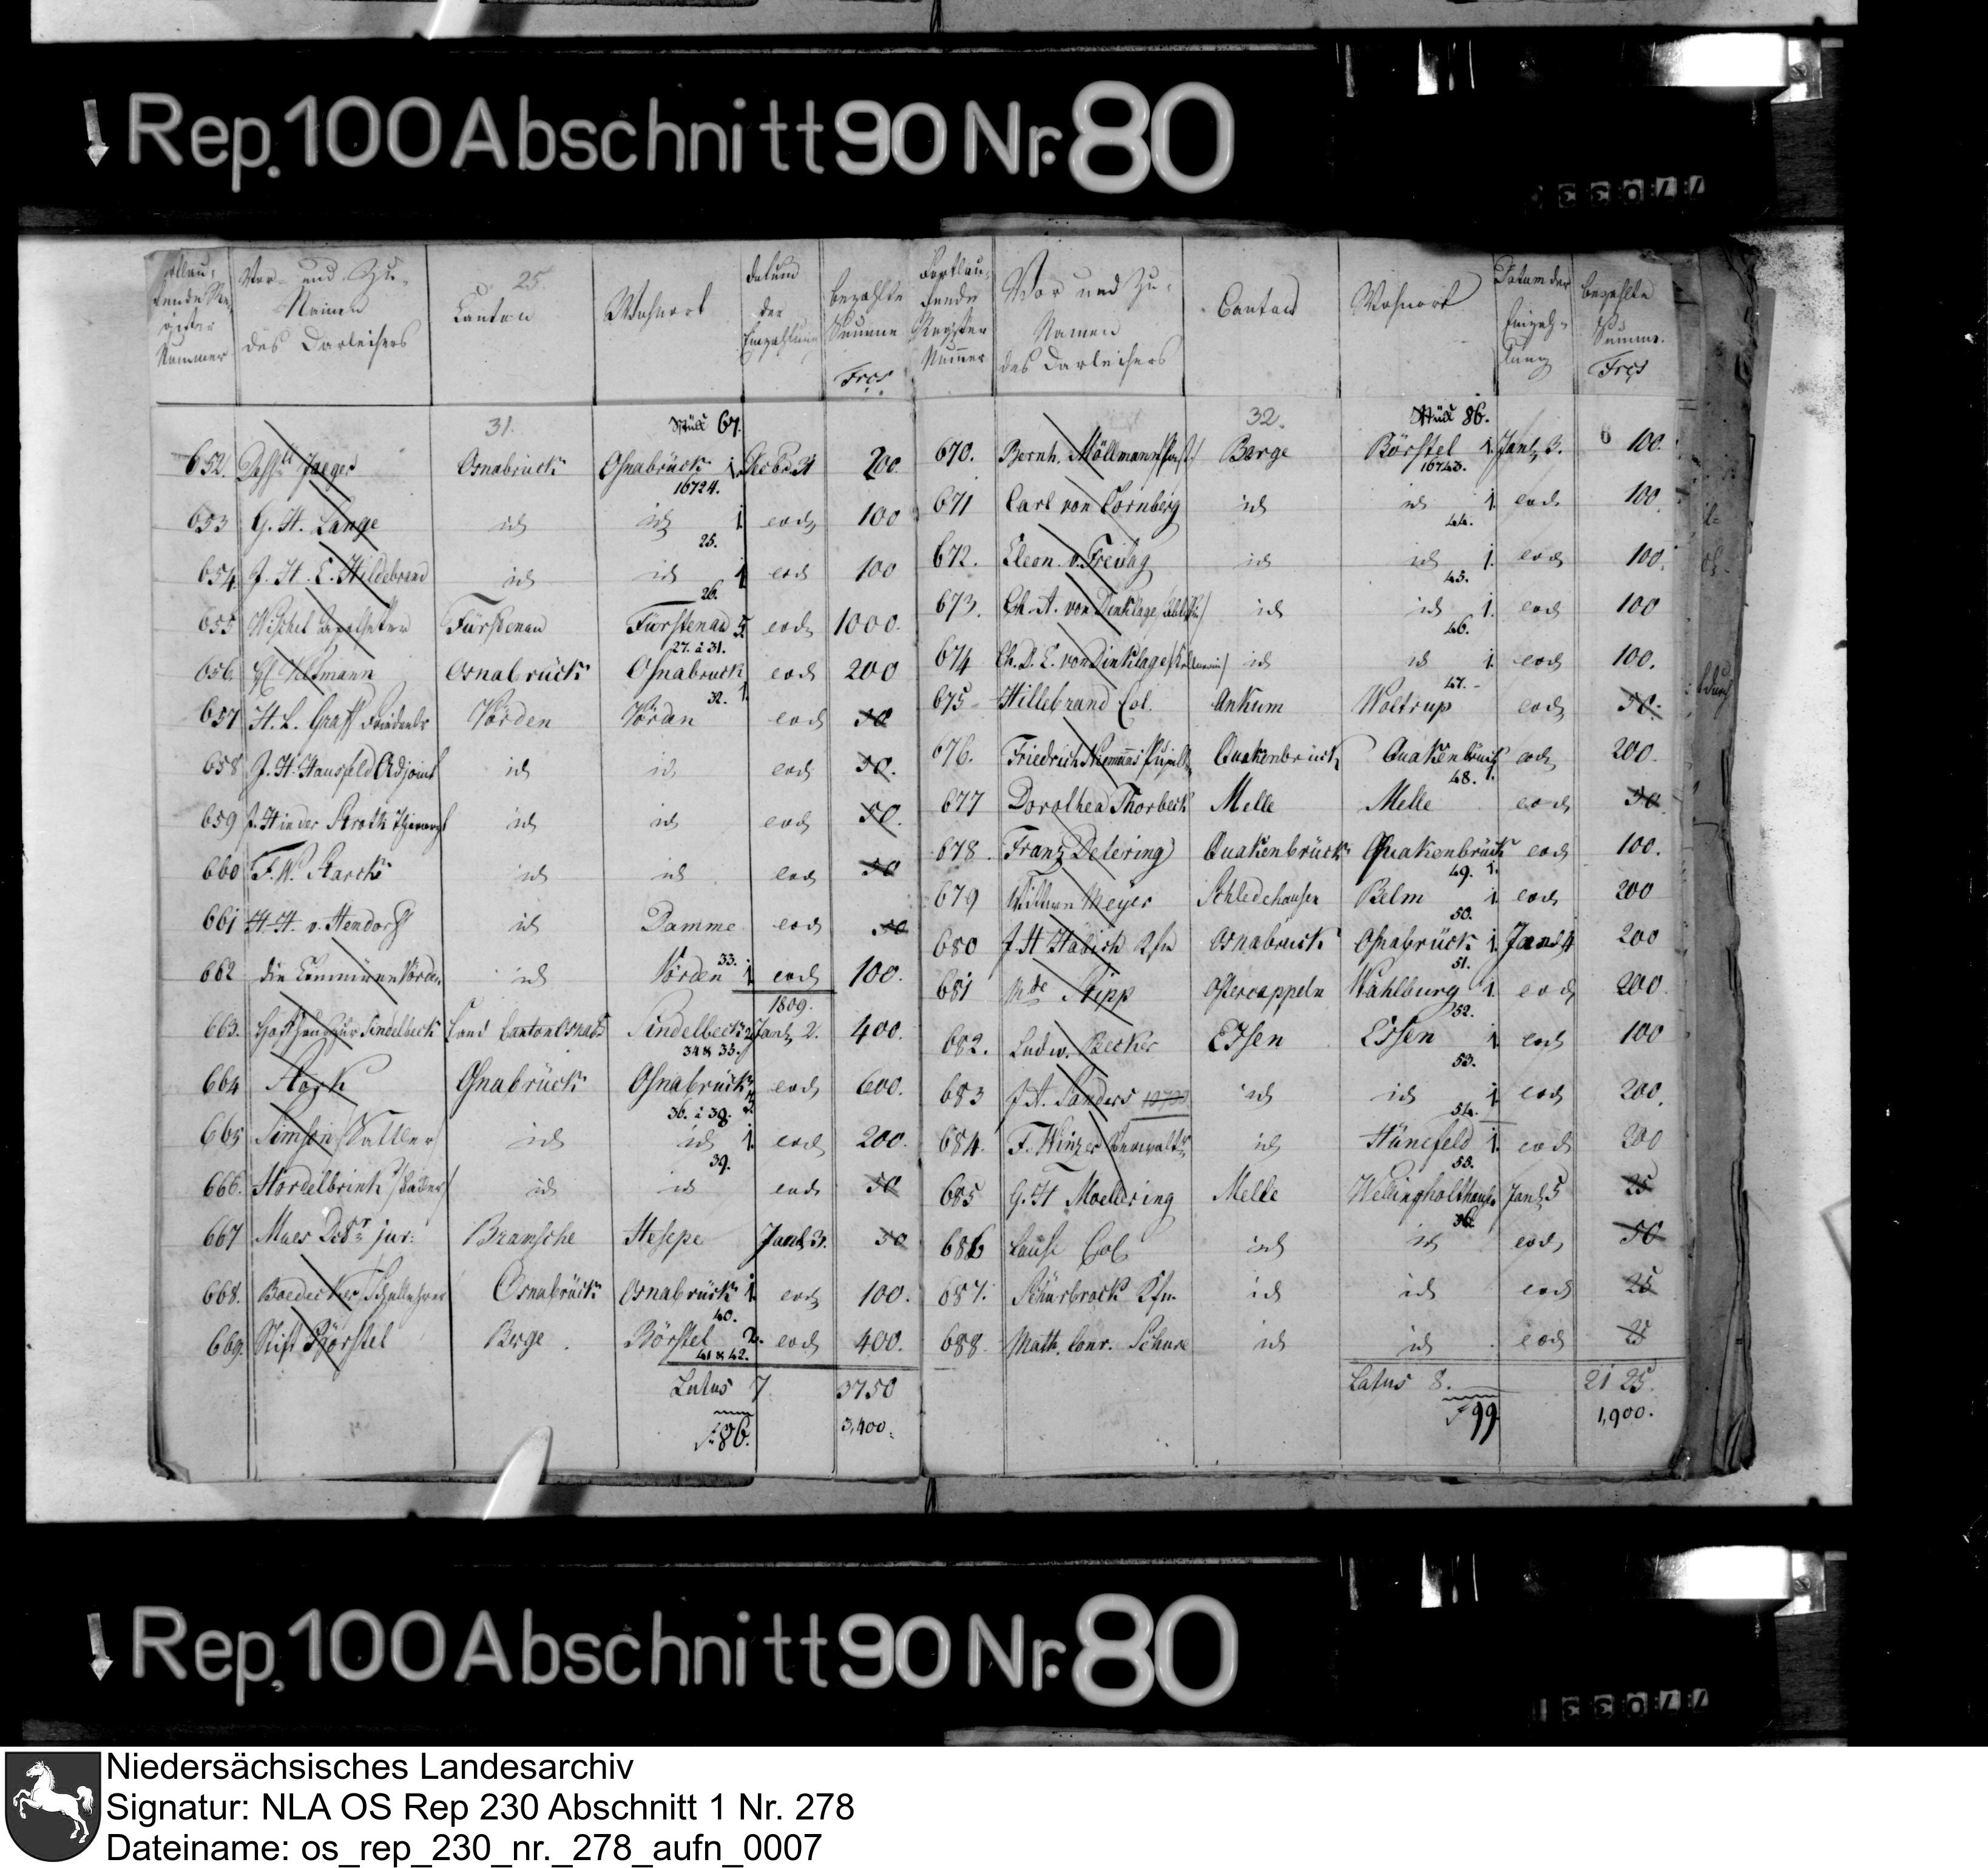 Rep. 100 Abschnitt 90 Nr. 80
77033
25.
Vor- und Zu-
Namen
des Darleihers
Canton
Wohnort
Datum
der
Einzahlung
bezahlte
Summe
Frcs
31.
Stück 67.
652. Jaeger Osnabrück Osnabrück 1. 31 200.
16724.
653 G. H. Lange id id 1. eod 100
25.
654. J. H. C. Hildebrand id id 1 eod 100
26.
655 Fürstenau Fürstenau 5. eod 1000.
27. à 31.
656. Osnabrück Osnabrück 1. eod 200
32.
657 H. L. Graff Vörden Vörden eod 50
658 J. H. Hausfeld Adjoint id id eod 50.
659 id id eod 50.
660 F. W. id id eod 50
661 H. H. v. Hendorff id Damme eod 50
662 die Commüne Vörden id Vörden 1 eod 100.
33.
1809.
663. Land Canton Osnabr Sindelbeck 2 Jan. 2. 400.
34 & 35.
664 Stork Osnabrück Osnabrück 3. eod 600.
36. à 39.
665 Simson Sattler id id 1. eod 200.
39.
666. Hordelbrink id id eod 50
667 Maes Doct. jur: Bramsche Hesepe Jan. 3. 50
668. Boedecker Osnabrück Osnabrück 1. eod 100.
40.
669. Stift Börstel Berge Börstel 2. eod 400.
41 & 42.
Latus 7 3750
86. 3,400.
Fortlau-
fende
Register
Numer
Vor und Zu-
Namen
des Darleihers
Canton
Wohnort
Datum der
Einzah-
lung
bezahlte
Summe.
Frcs
32.
Stück 86.
670. Bernh. Möllmann Berge Börstel 1. Jan. 3. 100.
16743.
671 Carl von Cornberg id id 1. eod. 100.
44.
672. Eleon. v. Freitag id id 1. eod 100.
45.
673. Ch. A. von Dinklage id id 1. eod 100
46.
674 Ch. D. E. von Dinklage id id 1. eod 100.
47.
675 Hillebrand Col. Ankum Woltrup eod 50.
676. Friedrich Quakenbrück Quakenbrück 1. eod 200.
48.
677 Dorothea Thorbeck Melle Melle eod 50.
678. Franz Detering Quakenbrück Quakenbrück 1. eod 100.
49.
679 Wittwe Meyer Schledehausen Belm 1. eod 200
50.
680 J H Kfm Osnabrück Osnabrück 1. Jan. 4 200
51.
681 Stipp Ostercappeln Wahlburg 1. eod 200.
52.
682. Ludw. Becker Essen Essen 1 eod 100
53.
683 J. A. Sanders id id 1 eod 200.
54.
684. F. Winzer Verwalter id Hünefeld 1. eod 200
55.
685 G. H Moellering Melle Wellingholthausen Jan. 5 25
56.
686 Col id id eod 50
687. Kfm id id eod 25
688. Math. Conr. id id eod 25
Latus 8. 2125.
99. 1,900.
Rep. 100 Abschnitt 90 Nr. 80
77033
Niedersächsisches Landesarchiv
Signatur: NLA OS Rep 230 Abschnitt 1 Nr. 278
Dateiname: os_rep_230_nr._278_aufn_0007